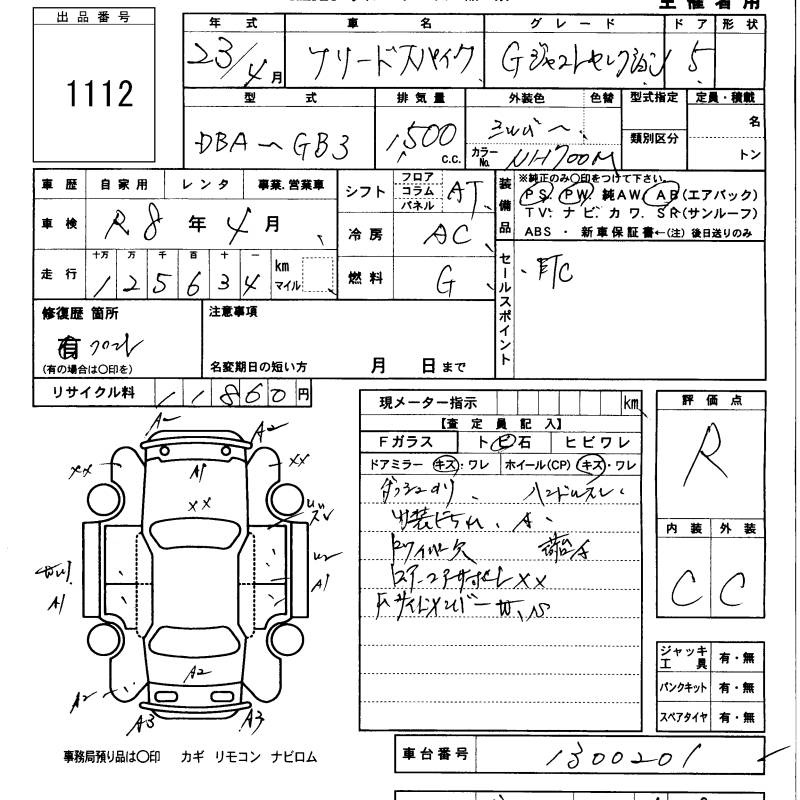 主催者用
出品番号
1112
年式 車名 グレード ドア 形状
23/4月 フリードスパイク Gジャストセレクション 5
型式 排気量 外装色 色替 型式指定 定員・積載
DBA〜GB3 1,500 c.c. シルバー 類別区分 名
カラーNo. NH700M トン
車歴 自家用 レンタ 事業.営業車
車検 R8年4月
走行 十万 万 千 百 十 一
125634 km マイル
シフト フロア コラム パネル AT
冷房 AC
燃料 G
装備品
※純正のみ○印をつけて下さい。
PS. PW. 純AW. AB(エアバック)
TV. ナビ. カワ. SR(サンルーフ)
ABS ・ 新車保証書←(注) 後日送りのみ
セールスポイント
ETC
修復歴 箇所
有 フロント
(有の場合は○印を)
注意事項
名変期日の短い方 月 日まで
リサイクル料 11860円
現メーター指示 km
【査定員記入】
Fガラス トビ石 ヒビワレ
ドアミラー キズ・ワレ ホイール(CP) キズ・ワレ
ダッシュノリ、 ハンドルスレ
内装ドラム、A、
Rワイパー欠
R.コアサポートXX
Fサイドメンバーw、S
評価点
R
内装 外装
C C
ジャッキ工具 有・無
パンクキット 有・無
スペアタイヤ 有・無
A2
A2
XX
A1
XX
XX
A1
A1
A2
A2
A3
A3
事務局預り品は○印 カギ リモコン ナビロム
車台番号 1300201